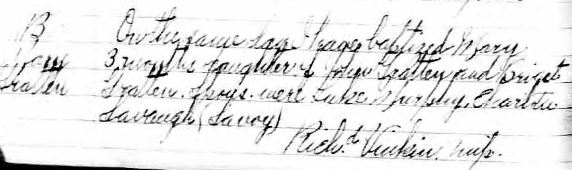 B On the same day I have baptized Mary
3 months daughter of John Gratten and Briget
Gratten Gratten. Spons. were Luke Murphy, Charlotte
Savaugh (Savoy)
Rich.d Vinkin, miss.